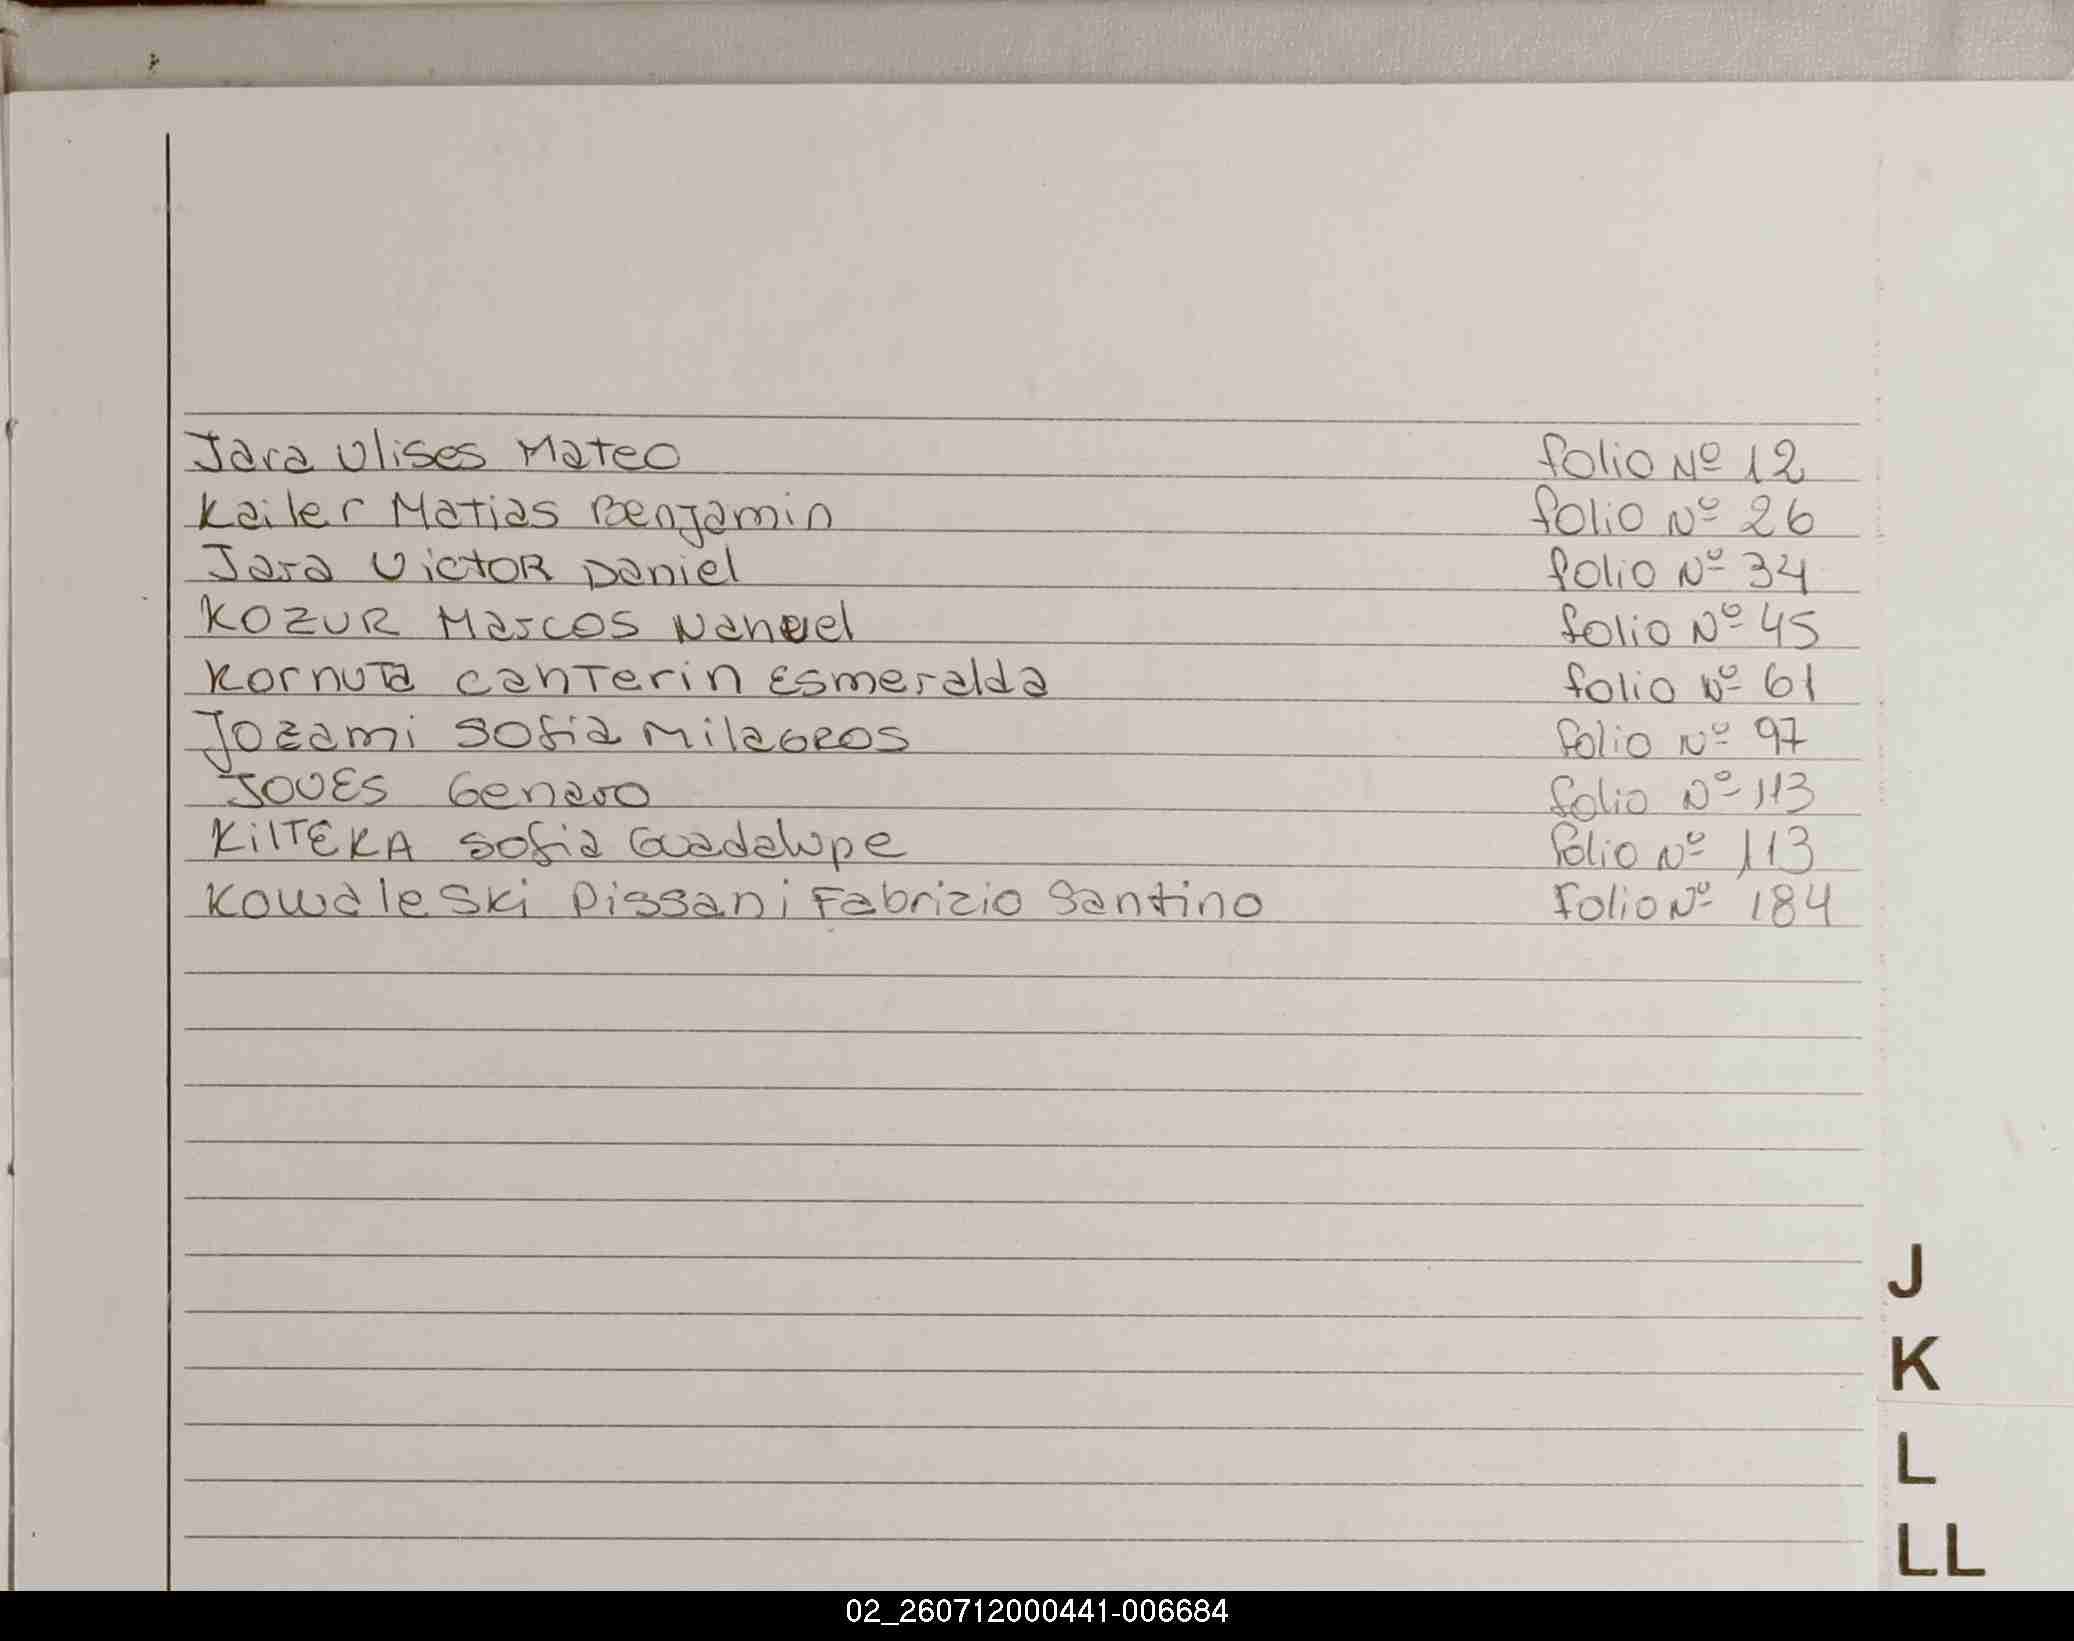 Jara Ulises Mateo folio Nº 12
Kailer Matias Benjamin folio Nº 26
Jara Victor Daniel folio Nº 34
KOZUR Marcos Nahuel folio Nº 45
Kornuta Canterin Esmeralda folio Nº 61
Jozami Sofia Milagros folio Nº 97
JOVES Genaro folio Nº 113
KilTEKA Sofia Guadalupe folio Nº 113
Kowaleski Pissani Fabrizio Santino Folio Nº 184
J
K
L
LL
02_260712000441-006684